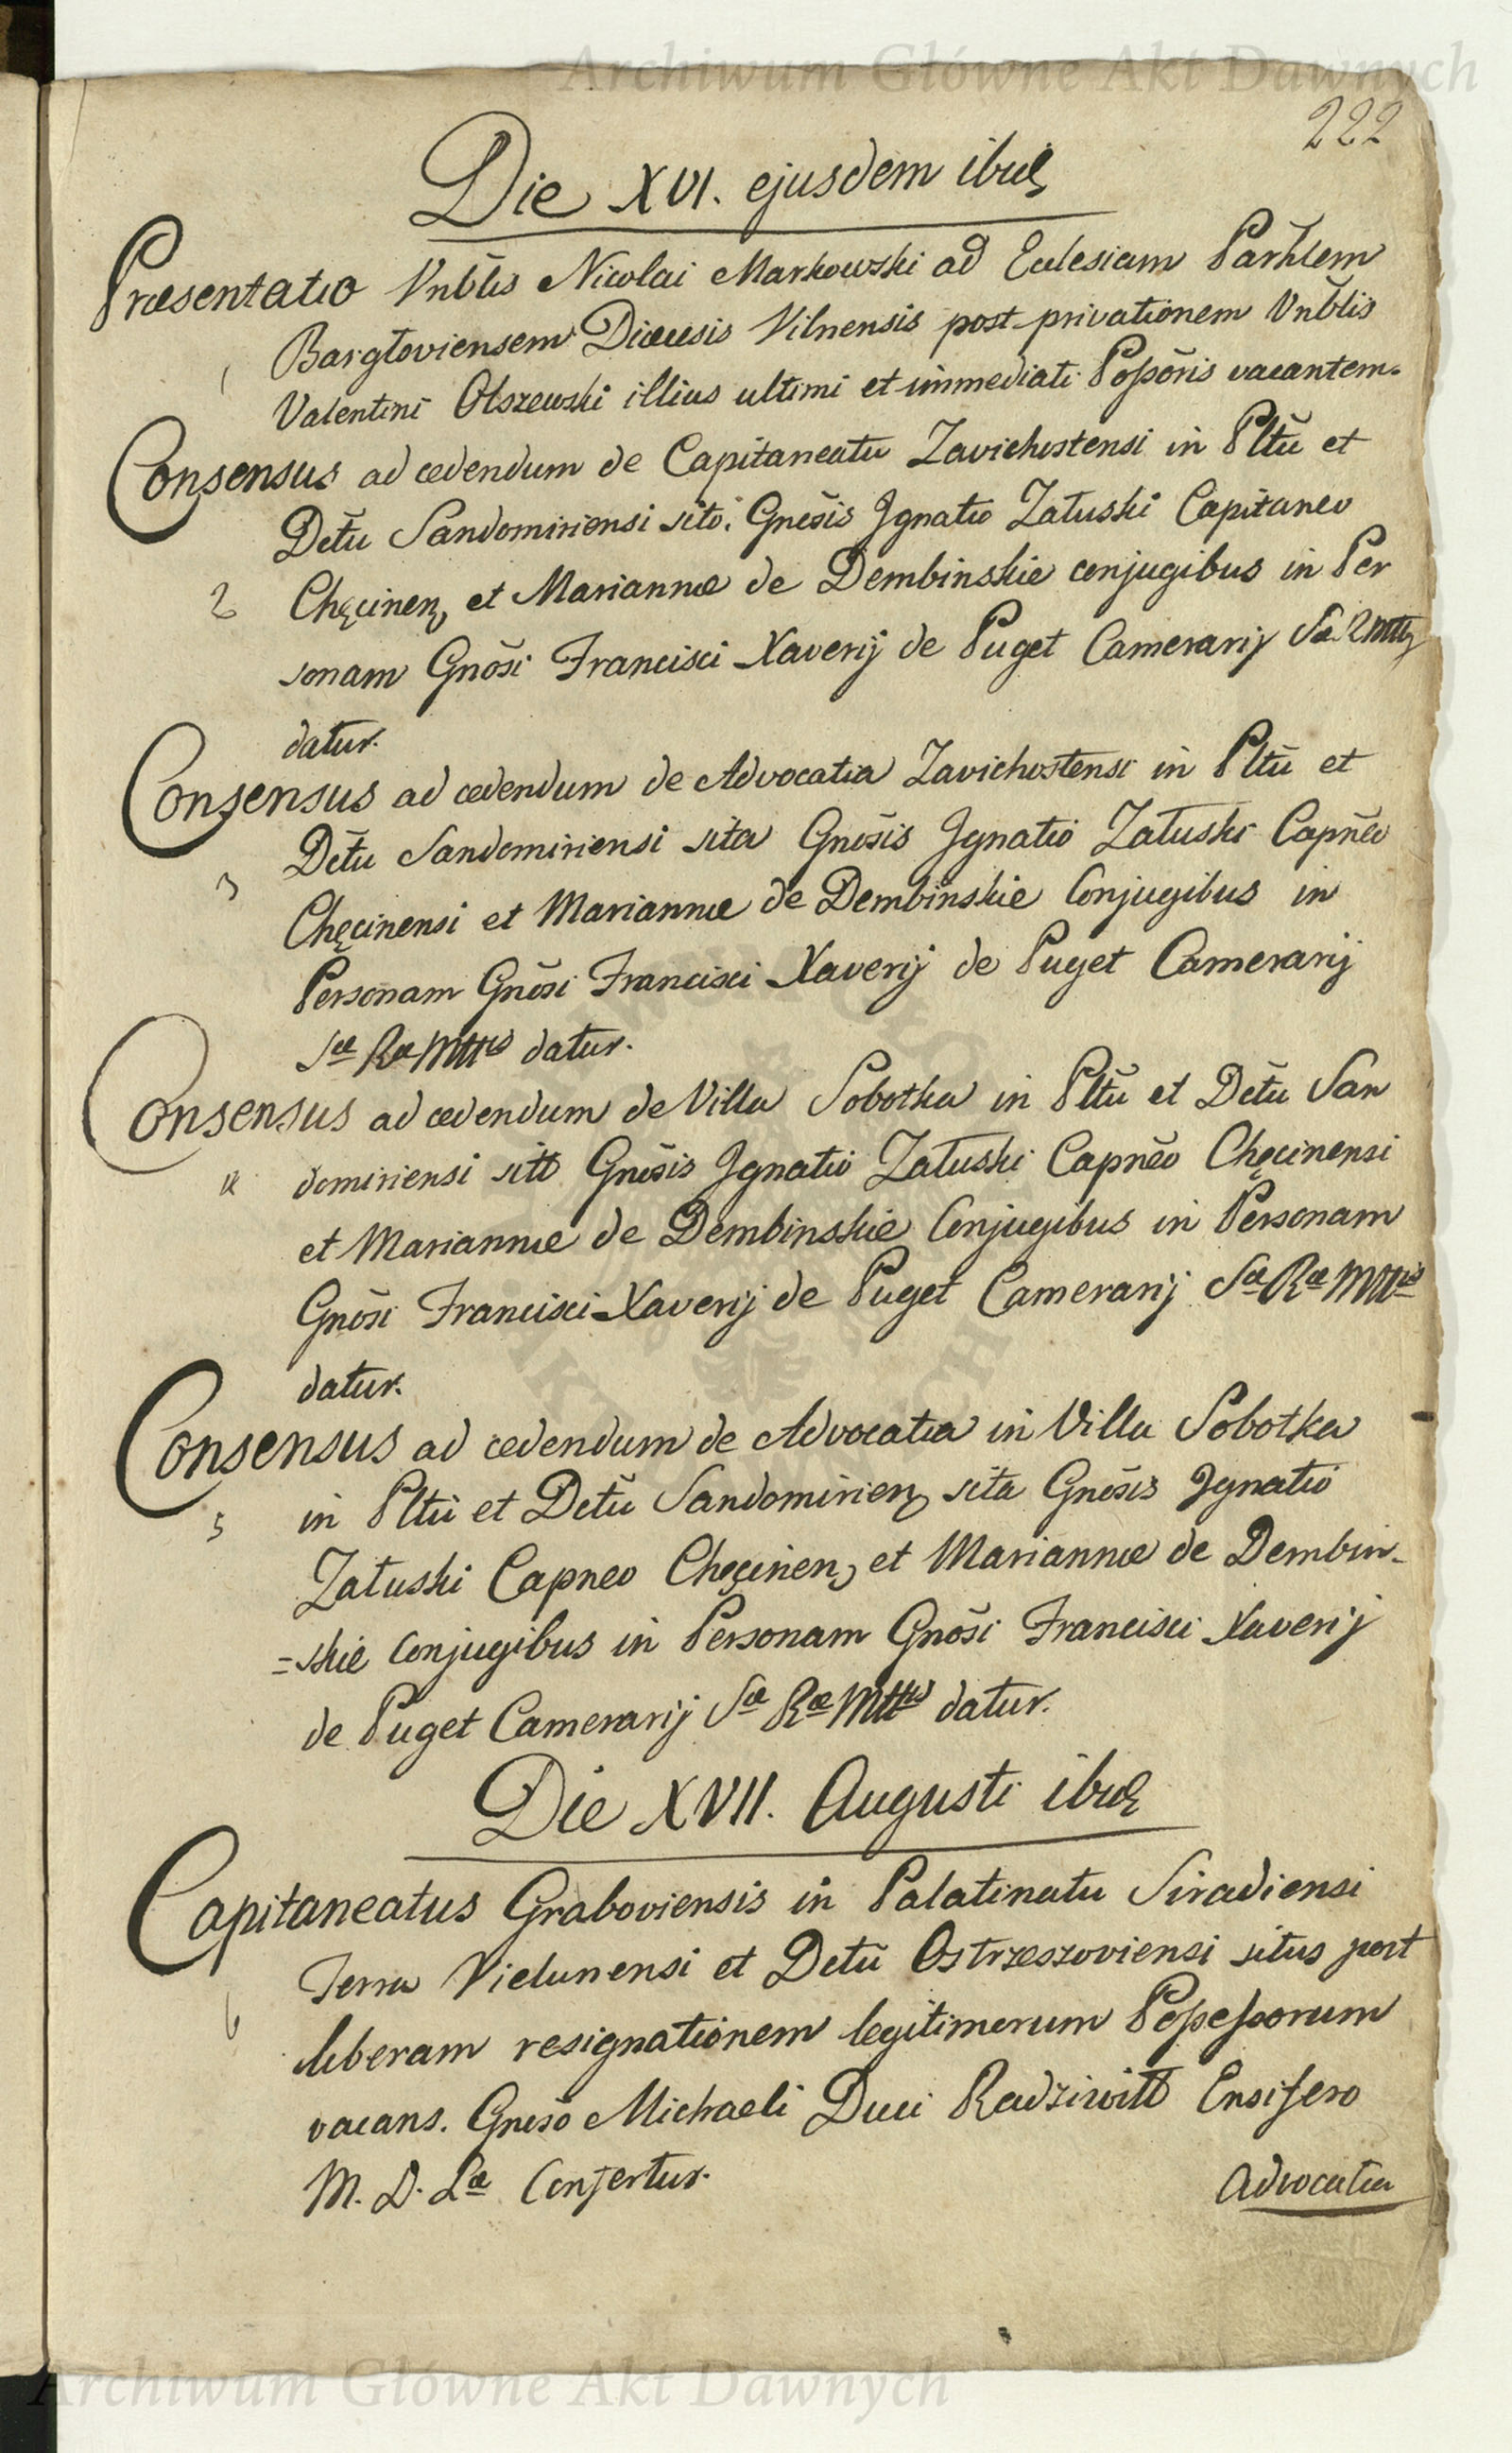 Archiwum Główne Akt Dawnych
222
Die XVI. ejusdem ibid
Præsentatio Vnblis Nicolai Markowski ad Ecclesiam Parhlem
1 Bargłoviensem Diæcesis Vilnensis post privationem Vnblis
Valentini Olszewski illius ultimi et immediati Possoris vacantem.
Consensus ad cedendum de Capitaneatu Zavichostensi in Pltu et
Dctu Sandomiriensi sito. Gnosis Ignatio Załuski Capitaneo
2 Chęcinen, et Mariannæ de Dembinskie conjugibus in Per
sonam Gnosi Francisci Xaverij de Puget Camerarij Sæ Ræ Mttis
datur.
Consensus ad cedendum de Advocatia Zavichostensi in Pltu et
Dctu Sandomiriensi sita Gnosis Ignatio Załuski Capneo
3 Chęcinensi et Mariannæ de Dembinskie Conjugibus in
Personam Gnosi Francisci Xaverij de Puget Camerarij
Sæ Ræ Mttis datur.
Consensus ad cedendum de Villa Sobotka in Pltu et Dctu San
4 domiriensi sitt Gnosis Ignatio Załuski Capneo Chęcinensi
et Mariannæ de Dembinskie Conjugibus in Personam
Gnosi Francisci Xaverij de Puget Camerarij Sæ Ræ Mttis
datur.
Consensus ad cedendum de Advocatia in Villa Sobotka
5 in Pltu et Dctu Sandomirien, sita Gnosis Ignatio
Załuski Capneo Chęcinen, et Mariannæ de Dembin-
=skie Conjugibus in Personam Gnosi Francisci Xaverij
de Puget Camerarij Sæ Ræ Mttis datur.
Die XVII. Augusti ibid
Capitaneatus Graboviensis in Palatinatu Siradiensi
Terra Vielunensi et Dctu Ostrzeszoviensi situs post
6 liberam resignationem legitimorum Possessorum
vacans. Gnoso Michaeli Duci Radziwiłł Ensifero
M. D. Læ Confertur.
Advocatia
Archiwum Główne Akt Dawnych